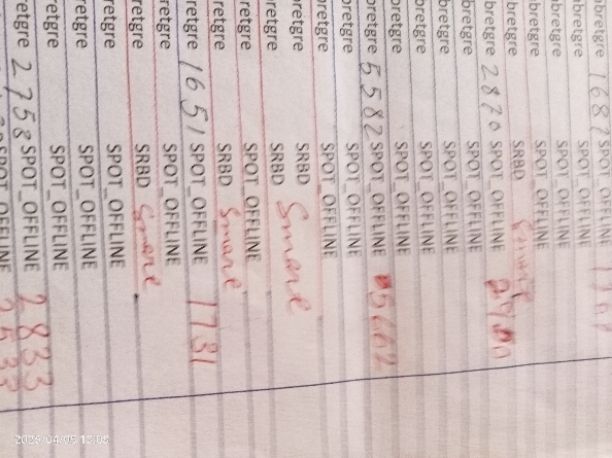 bretgre 1687 SPOT_OFFLINE
bretgre SPOT_OFFLINE
bretgre SPOT_OFFLINE
bretgre SPOT_OFFLINE
bretgre SRBD Smare
bretgre 2870 SPOT_OFFLINE 2900
bretgre SPOT_OFFLINE
bretgre SPOT_OFFLINE
bretgre SPOT_OFFLINE
bretgre SPOT_OFFLINE
bretgre 5582 SPOT_OFFLINE 5662
bretgre SPOT_OFFLINE
bretgre SPOT_OFFLINE
retgre SRBD Smare
retgre SRBD
retgre SPOT_OFFLINE
retgre SRBD Smare
retgre 1651 SPOT_OFFLINE 1731
retgre SPOT_OFFLINE
retgre SRBD Smare
retgre SPOT_OFFLINE
retgre SPOT_OFFLINE
retgre SPOT_OFFLINE
retgre 2758 SPOT_OFFLINE 2833
SPOT_OFFLINE